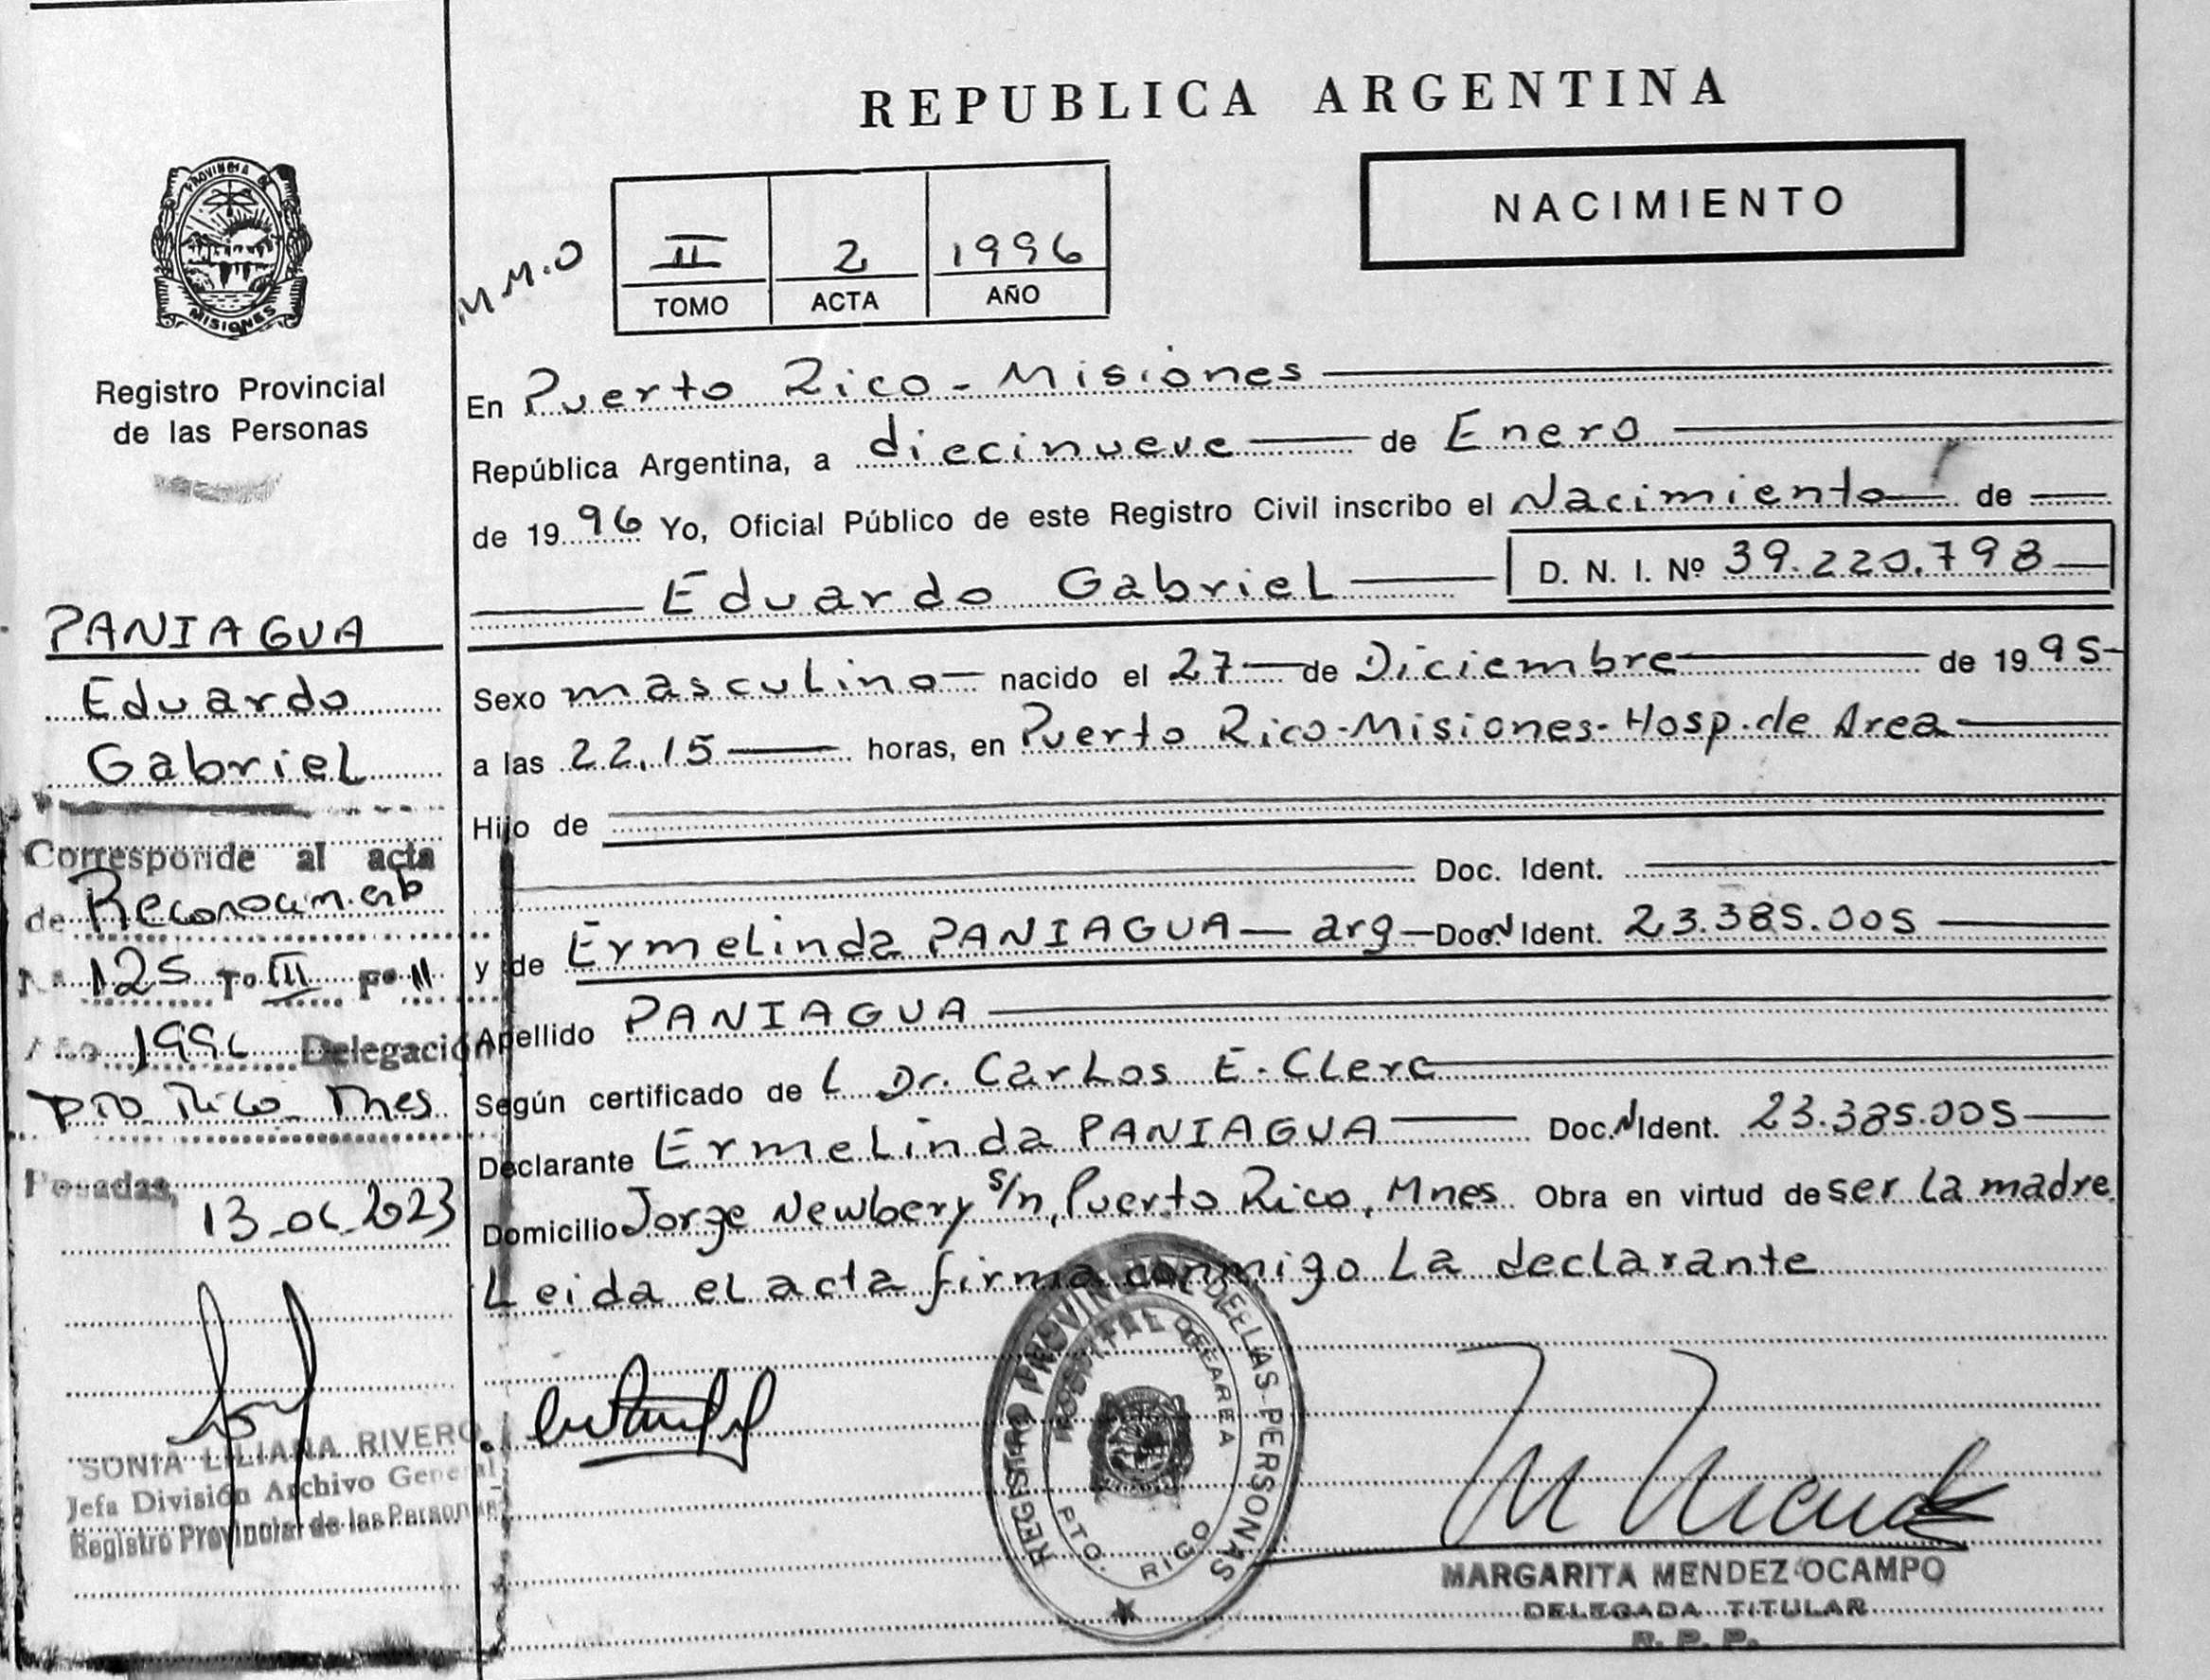 REPUBLICA ARGENTINA
NACIMIENTO
M.M.O
II 2 1996
TOMO ACTA AÑO
PROVINCIA DE
MISIONES
Registro Provincial
de las Personas
PANIAGUA
Eduardo
Gabriel
Corresponde al acta
de Reconocimiento
Nº 125 Tº III Fº 11
Año 1996 Delegación
Pto. Rico Mnes
Posadas,
13-06-2023
SONIA LILIANA RIVERO
Jefa División Archivo General
Registro Provincial de las Personas
En Puerto Rico - Misiones
República Argentina, a diecinueve de Enero
de 1996 Yo, Oficial Público de este Registro Civil inscribo el Nacimiento de
Eduardo Gabriel D. N. I. Nº 39.220.798
Sexo masculino nacido el 27 de Diciembre de 1995
a las 22,15 horas, en Puerto Rico-Misiones-Hosp. de Area
Hijo de
Doc. Ident.
y de Ermelinda PANIAGUA - arg - Doc.N Ident. 23.385.005
Apellido PANIAGUA
Según certificado de l Dr. Carlos E. Clerc
Declarante Ermelinda PANIAGUA Doc.N Ident. 23.385.005
Domicilio Jorge Newbery s/n, Puerto Rico, Mnes Obra en virtud de ser la madre.
Leida el acta firma conmigo la declarante
REGISTRO PROVINCIAL DE LAS PERSONAS
HOSPITAL DE AREA
PTO. RICO
MARGARITA MENDEZ OCAMPO
DELEGADA TITULAR
R. P. P.